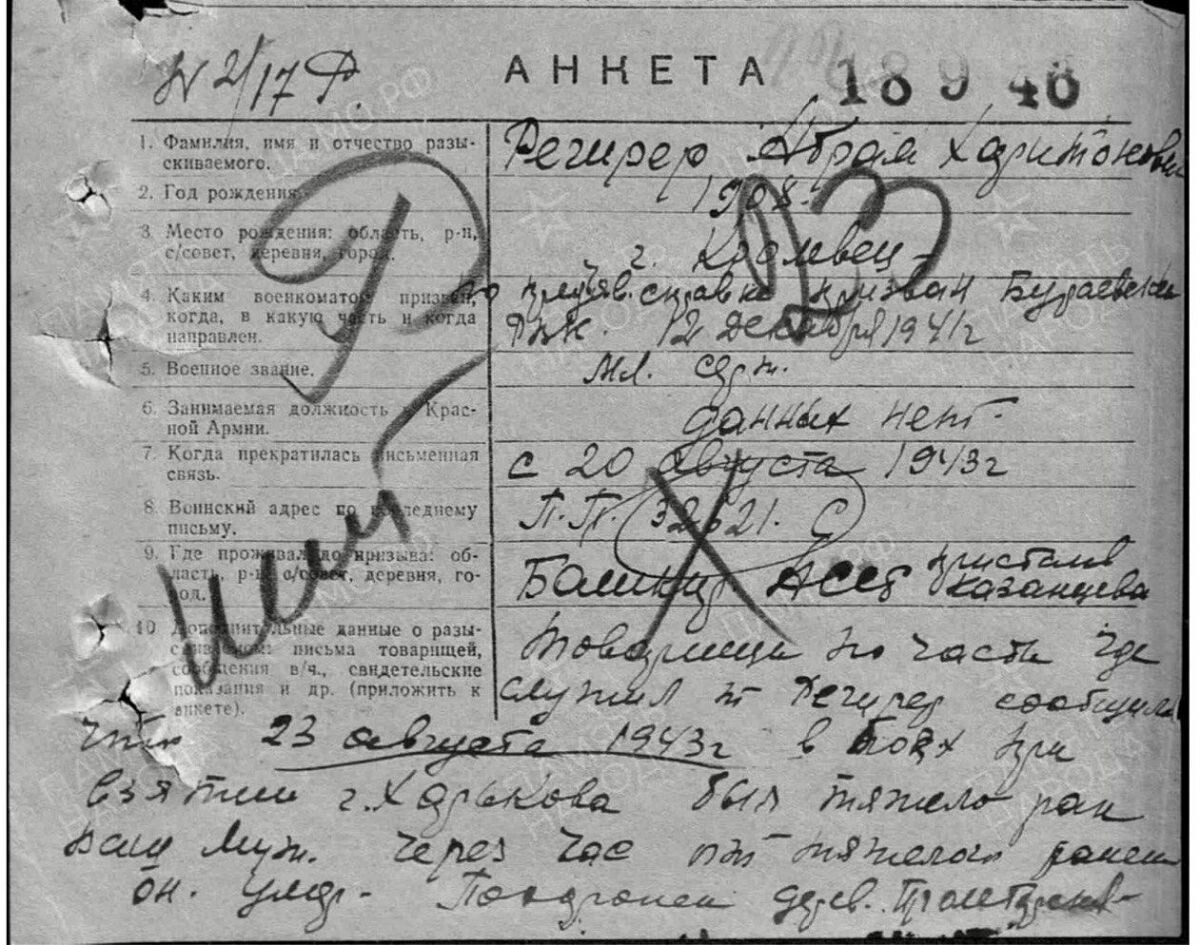 N 2/17 Р.
АНКЕТА
18 9 46
1. Фамилия, имя и отчество разы-
скиваемого.
Регирер Абрам Харитонович
2. Год рождения.
1908.
3. Место рождения: область, р-н,
с/совет, деревня, город.
г. Кролевец
4. Каким военкоматом призван,
когда, в какую часть и когда
направлен.
справке призван Бураевским
РВК. 12 декабря 1941г
5. Военное звание.
Мл. серж.
6. Занимаемая должность в Крас-
ной Армии.
данных нет.
7. Когда прекратилась письменная
связь.
с 20 августа 1943г
8. Воинский адрес по последнему
письму.
П.П. 32621. С
9. Где проживал до призыва: об-
ласть, р-н, с/совет, деревня, го-
род.
Башкир. АССР пристань
Казанцева
10. Дополнительные данные о разы-
скиваемом: письма товарищей,
сообщения в/ч., свидетельские
показания и др. (приложить к
анкете).
Товарищи по части где
служил т Регирер сообщили
что 23 августа 1943г в боях при
взятии г. Харькова был тяжело ран
Ваш Муж. Через час от тяжелого ранен
он. умер. Похоронен дерев.
Р
93
ПАМЯТЬ
НАРОДА